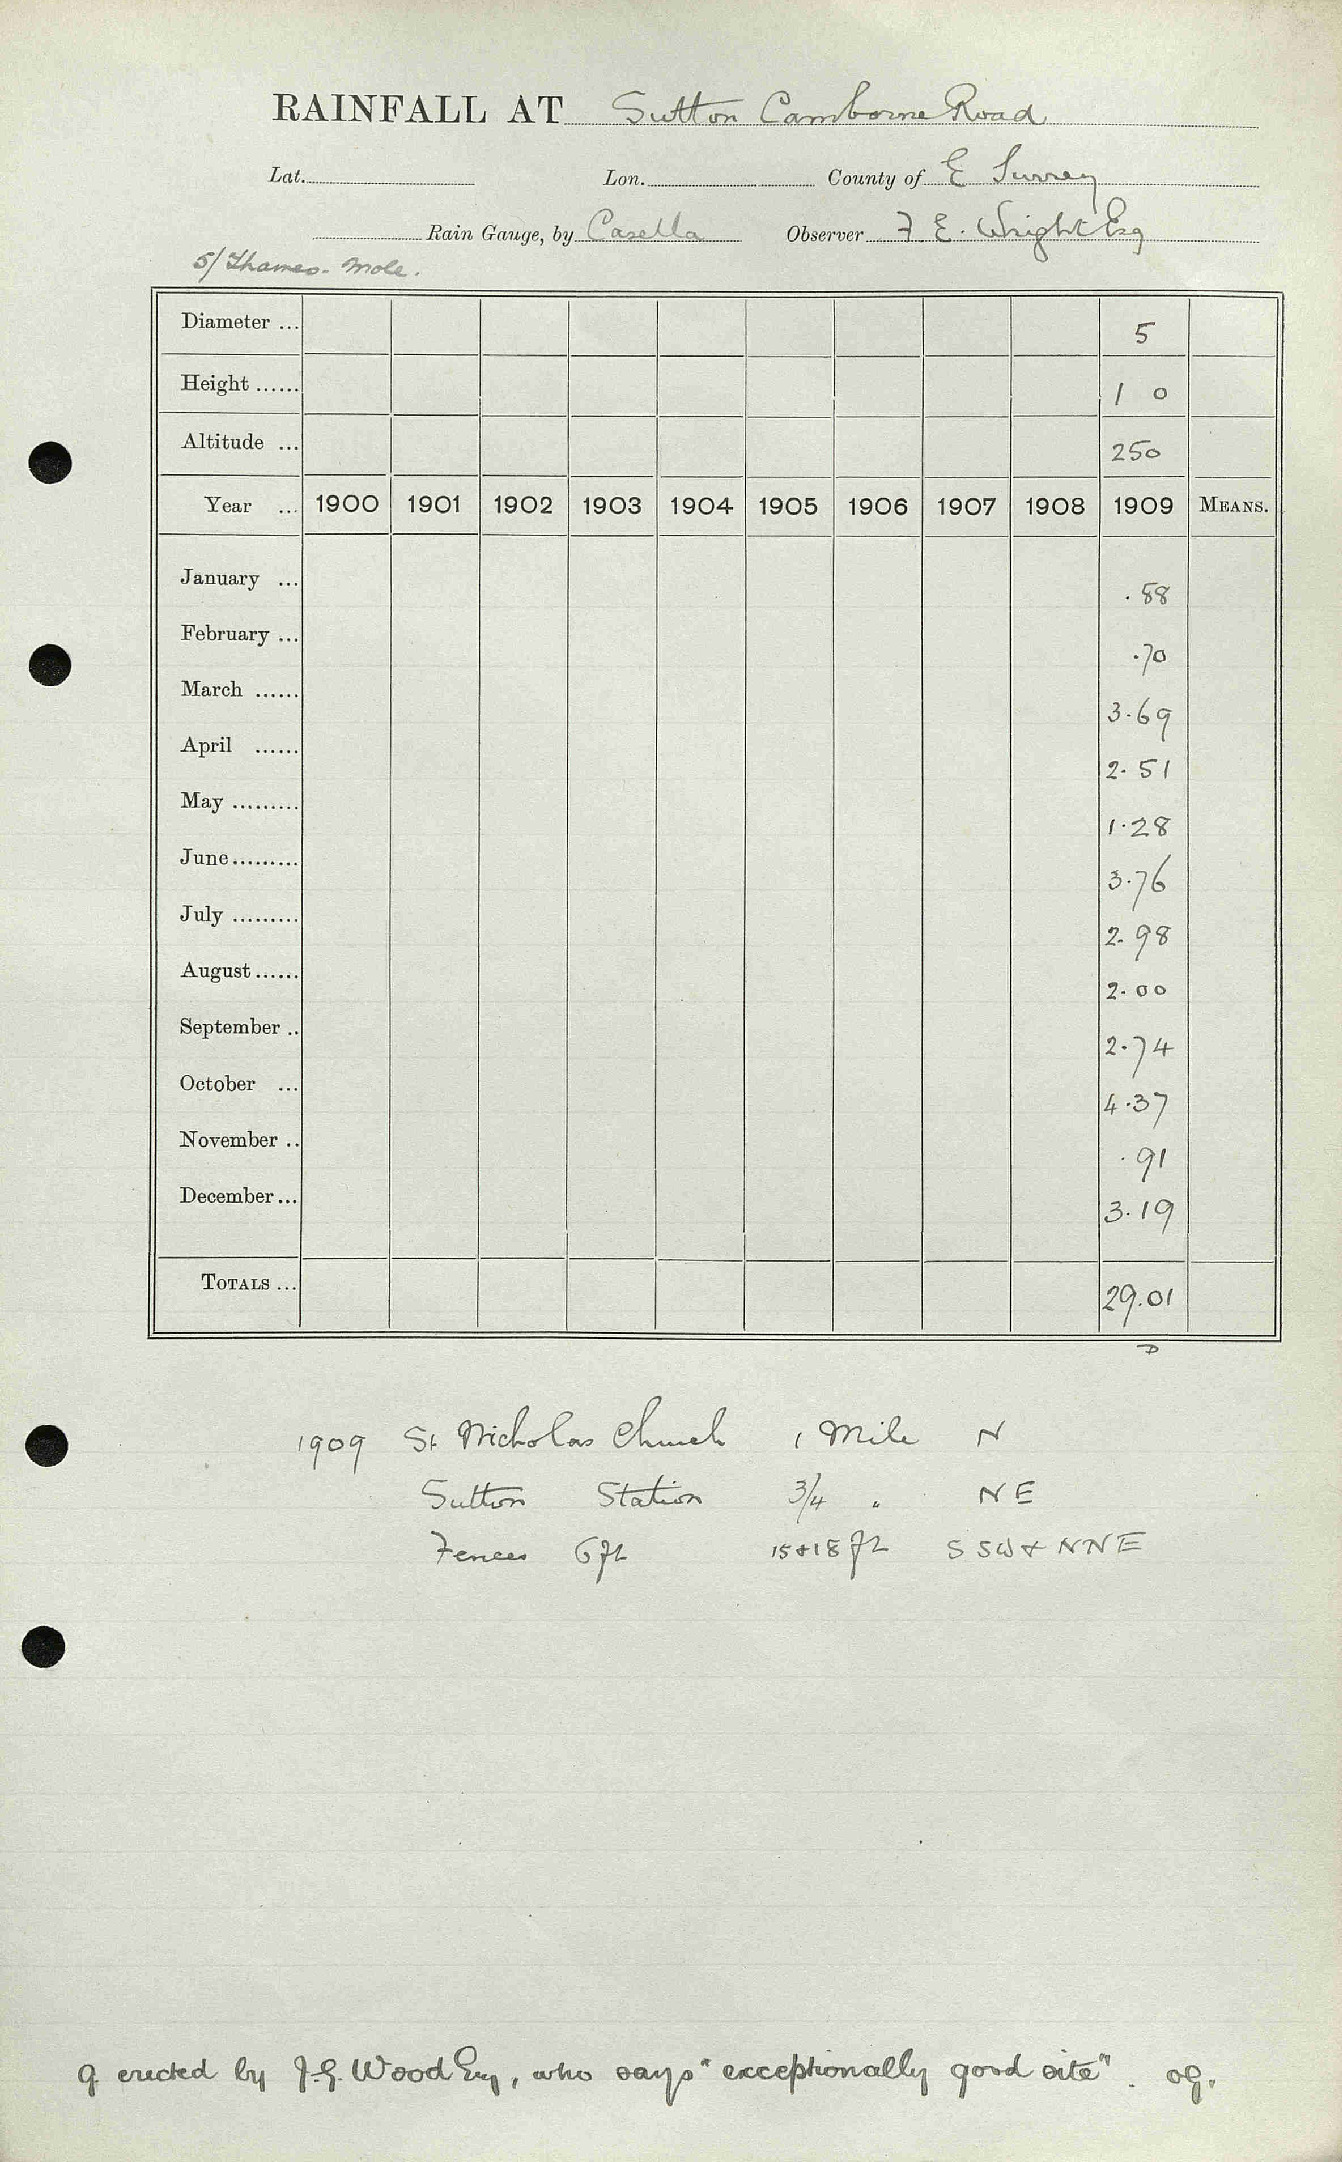 RAINFALL AT Sutton Camborne Road
Lat. Lon. County of E Surrey
Rain Gauge, by Casella Observer F. E. Wright Esq
5/Thames-Mole.
Diameter ... 5
Height ...... 1 0
Altitude ... 250
Year ... 1900 1901 1902 1903 1904 1905 1906 1907 1908 1909 MEANS.
January ... .88
February ... .70
March ...... 3.69
April ...... 2.51
May ......... 1.28
June ......... 3.76
July ......... 2.98
August ...... 2.00
September .. 2.74
October ... 4.37
November .. .91
December ... 3.19
TOTALS ... 29.01
D
1909 St Nicholas Church 1 Mile N
Sutton Station 3/4 " NE
Fences 6 ft 15 & 18 ft S SW & NNE
g. erected by J.G. Wood Esq, who says "exceptionally good site".